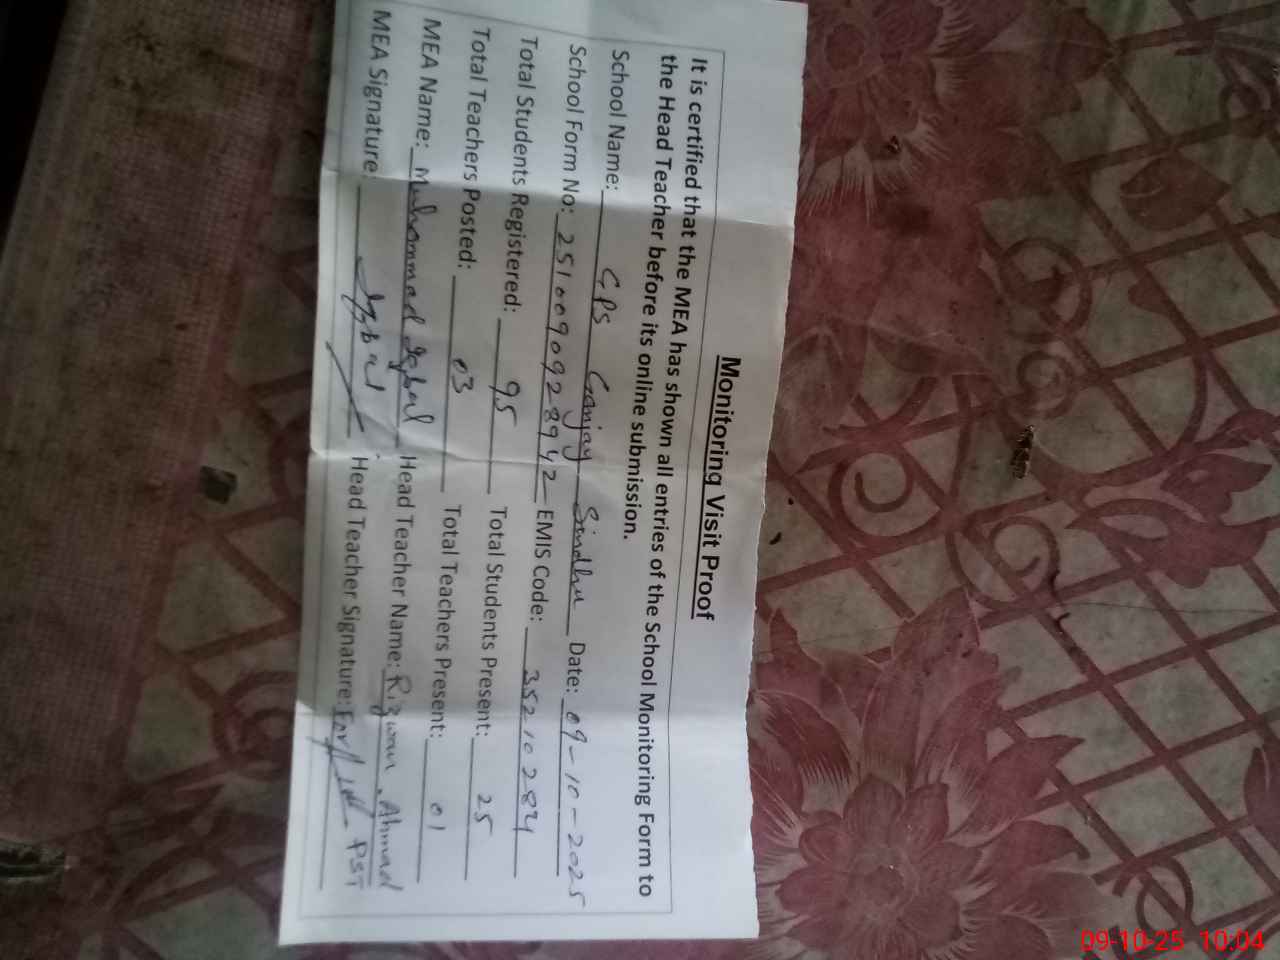 Monitoring Visit Proof
It is certified that the MEA has shown all entries of the School Monitoring Form to
the Head Teacher before its online submission.
School Name: GPS Ganjay Sindhu Date: 09-10-2025
School Form No: 2510090928942 EMIS Code: 35210284
Total Students Registered: 95 Total Students Present: 25
Total Teachers Posted: 03 Total Teachers Present: 01
MEA Name: Muhammad Iqbal Head Teacher Name: Rizwan Ahmad
MEA Signature: Iqbal Head Teacher Signature: For PST
09-10-25 10:04